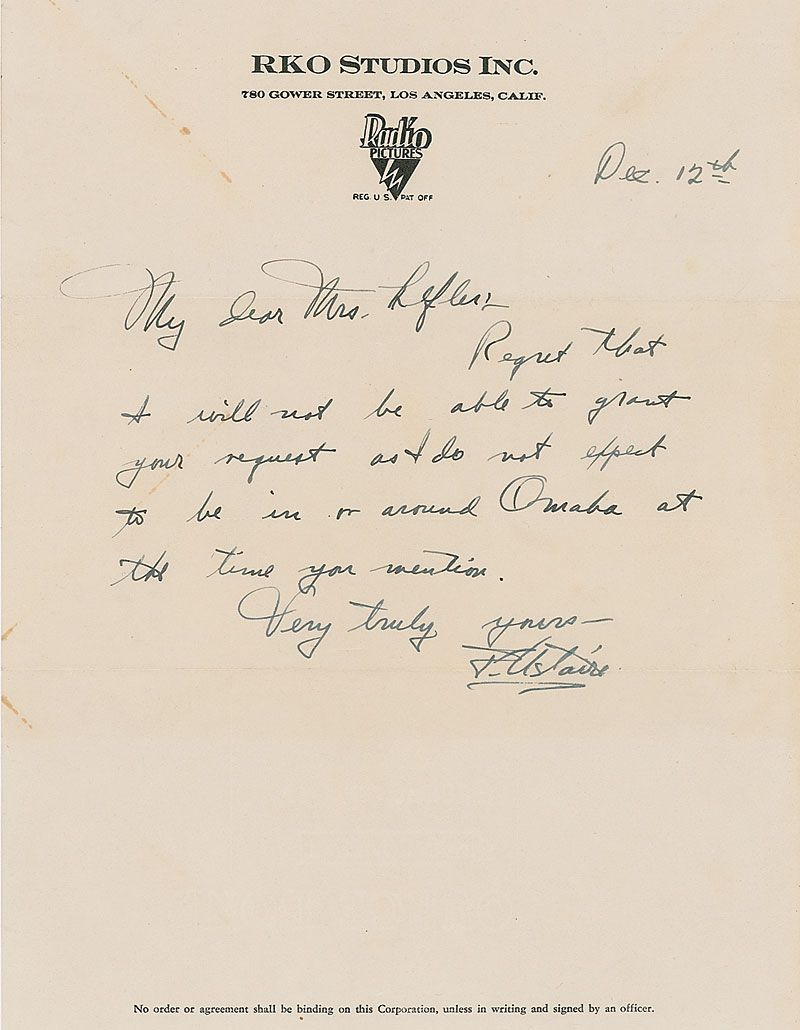 RKO STUDIOS INC.
780 GOWER STREET, LOS ANGELES, CALIF.
Radio
PICTURES
REG. U.S. PAT OFF
Dec. 12th
My dear Mrs. Lefler:-
Regret that
I will not be able to grant
your request as I do not expect
to be in or around Omaha at
the time you mention.
Very truly yours—
F. Astaire
No order or agreement shall be binding on this Corporation, unless in writing and signed by an officer.